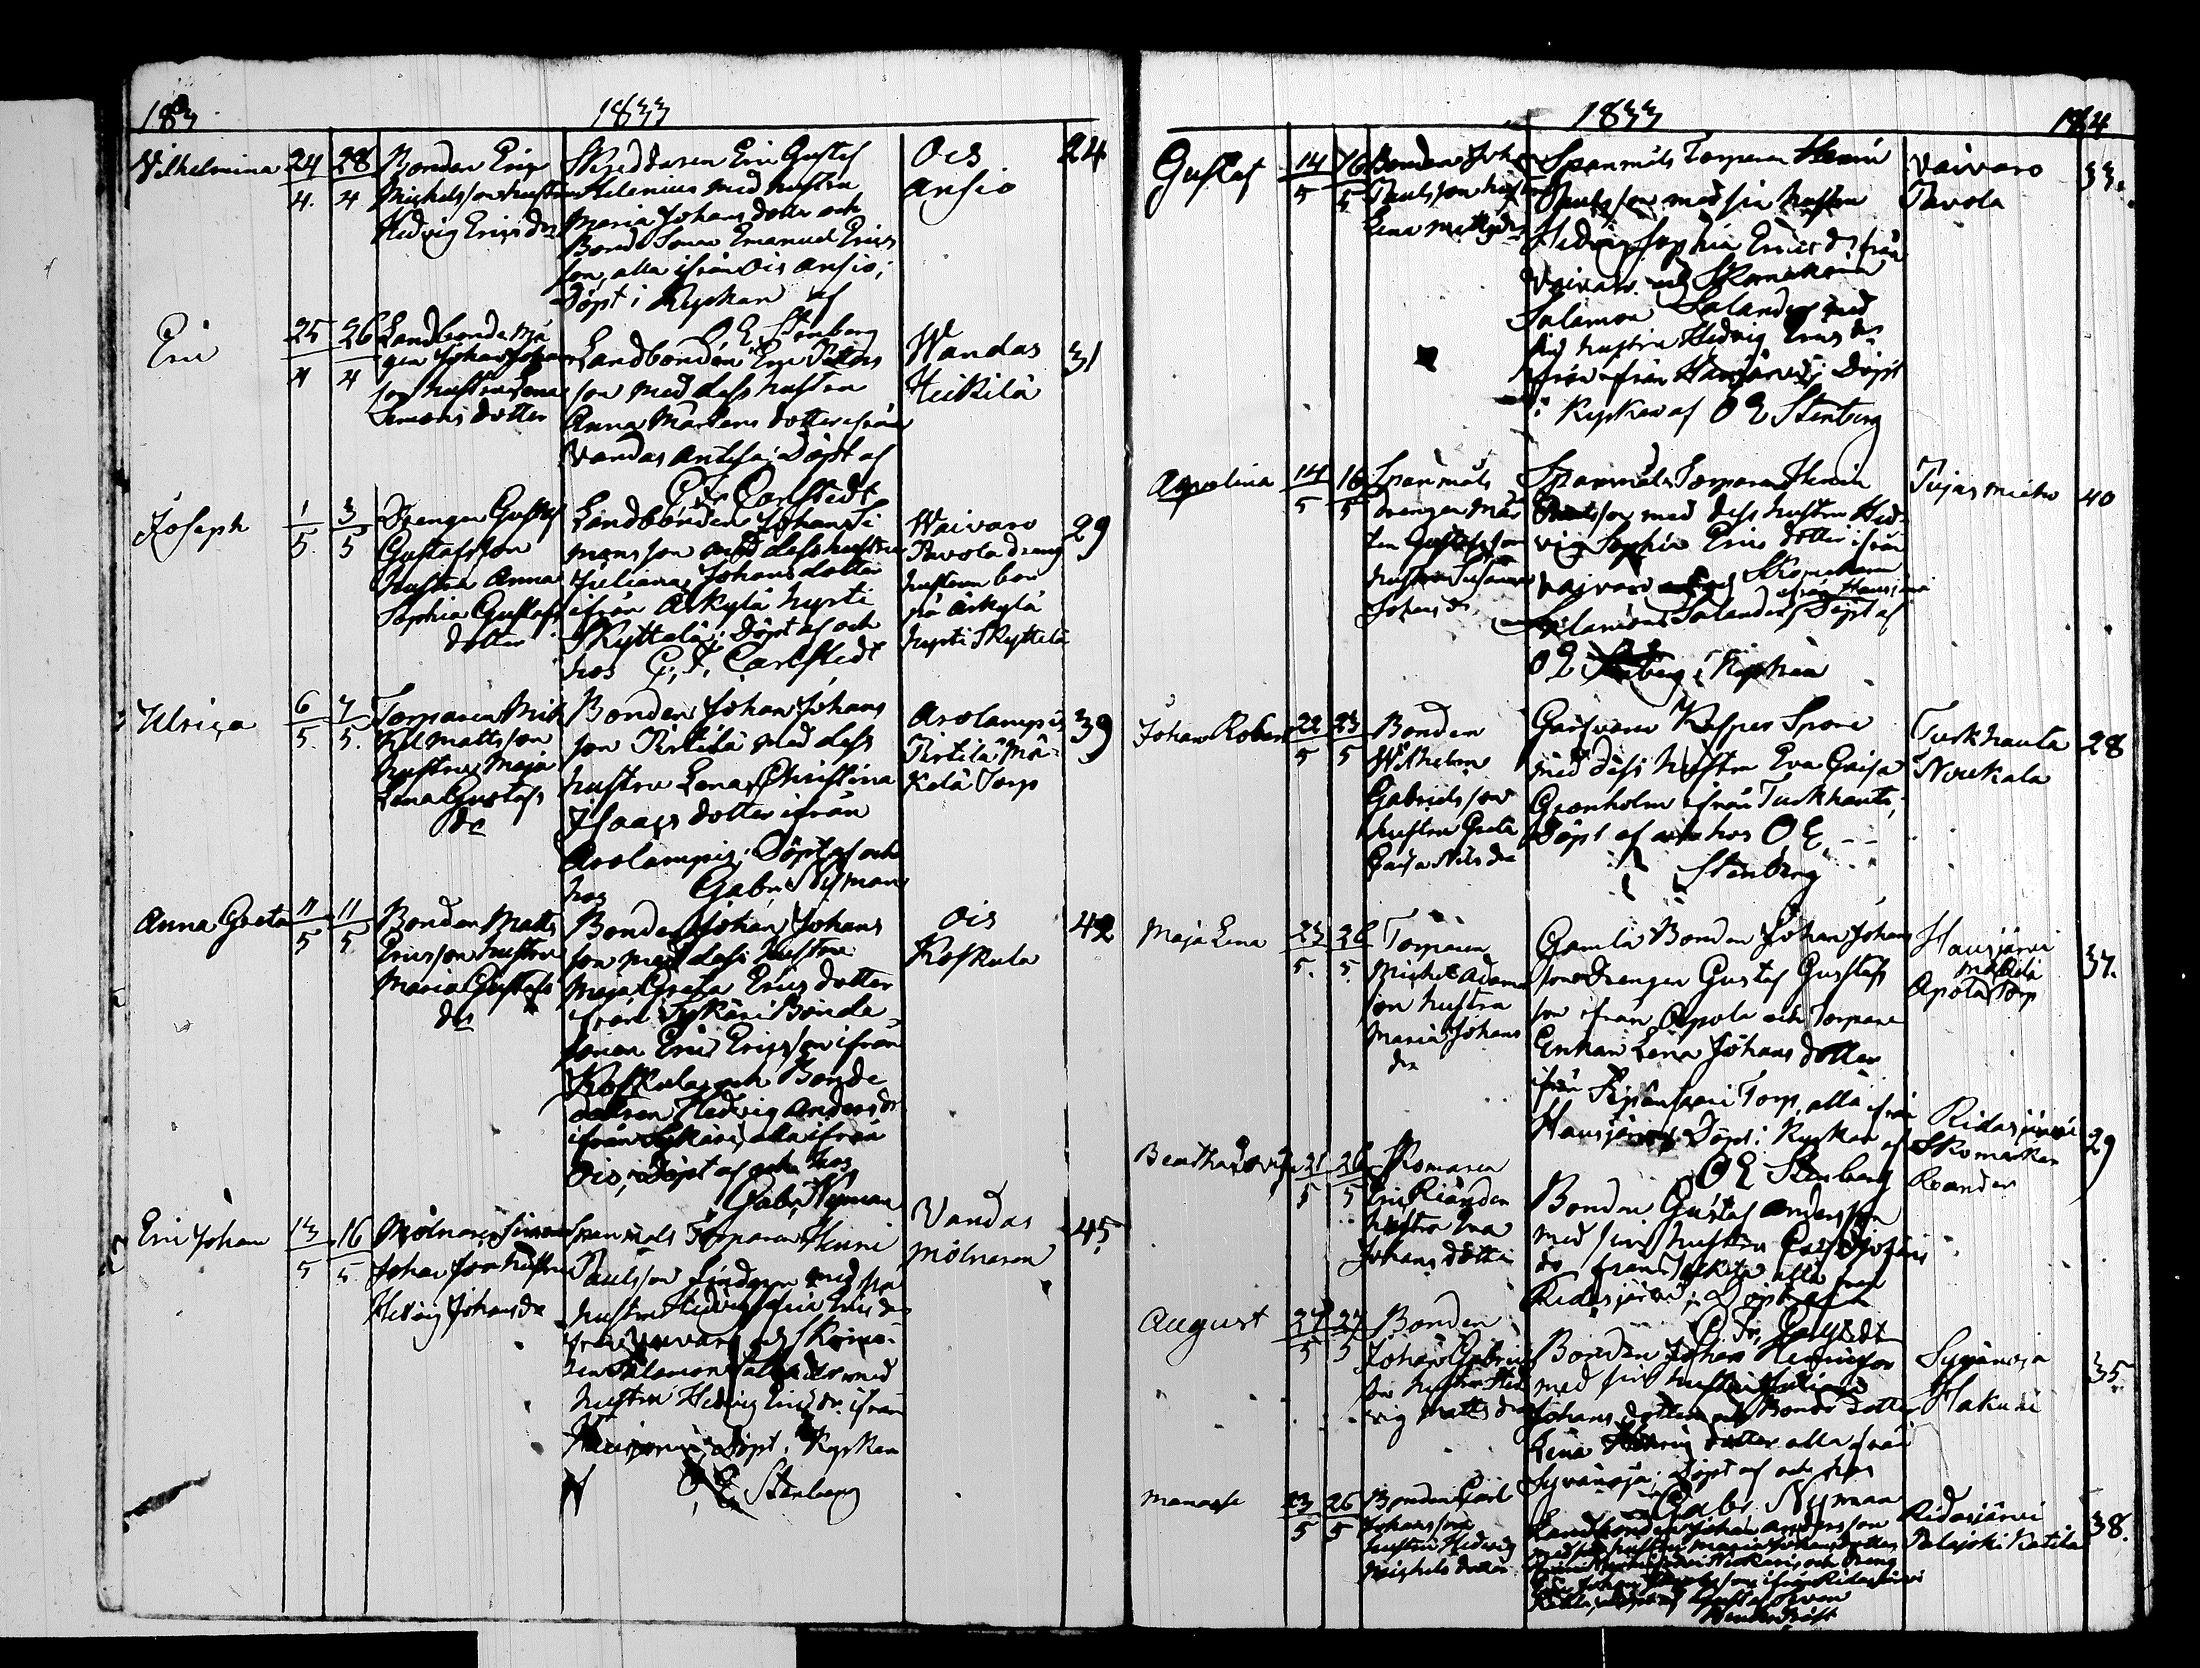 183
1833
Vilhelmina 24/4 28/4
Bonden Eric
Michelsson hustru
Hedvig Ericsdr
Skreddaren Eric Gustaf
Helenius med hustru
Maria Johans dotter och
Bonde Sonen Emanuel Erics
son, alla ifrån Ois Ansio;
Döpt i Kyrkan af
O E Stenberg
Ois
Ansio
24
Eric 25/4 26/4
Landbonde Må
gen Johan Johans
son hustru
Simons dotter
Landbonden Eric Petters
son med dess hustru
Anna Mårtens dotter ifrån
Vandas Antila; Döpt af
C. F. Carlstedt
Wandas
Heikilä
31
Joseph 1/5 3/5
Drengen Gustaf
Gustafsson
hustru Anna
Sophia Gustafs
dotter
Landbonden Johan Si
monsson med dess hustru
Juliana Johans dotter
ifrån Askylä hyrti
Skyttelä; Döpt af och
hos C. F. Carlstedt
Waivaro
Pavola dreng
hustrun bor
på Askylä
hyrti Skyttilä
29
Ulrica 6/5 7/5
Torparen Mic
kel Mattsson
hustru Maja
Lena Gustafs
dr
Bonden Johan Johans
son Pirtilä med dess
hustru Lena Christina
Isaacs dotter ifrån
Arolampis; Döpt af och
hos Gabr. Nyman
Arolampis
Pirtilä Mä-
kelä Torp
39
Anna Greta 11/5 11/5
Bonden Matts
Ericsson hustru
Maria Gustafs
dr
Bonden Johan Johans
son med dess hustru
Maja Greta Erics dotter
ifrån Sykäri Bonde
sonen Eric Ericsson ifrån
Koskula och Bonde
dottren Hedvig Anders dr
ifrån Sykäri, alla ifrån
Ois; Döpt af och hos
Gabr. Nyman
Ois
Koskula
42
Eric Johan 13/5 16/5
Mölnaren Simon
Johansson hustru
Hedvig Johansdr
Spanmåls Torparen Henric
Paulsson Lindgren med sin
hustru Hedvig Sofia Erics dr
ifrån Vaivaro och Skoma-
ken Salomon Salander med
hustru Hedvig Erics dr ifrån
Hausjervi; Döpt i Kyrkan
af O, E, Stenberg
Vandas
Mölnaren
45
1833
184
Gustaf 14/5 16/5
Bonden Joh
Paulsson hustru
Lena Mattsdr
Spanmåls Torparen Henric
Paulsson med sin hustru
Hedvig Sophia Erics dr från
Vaivaro och Skomakarn
Salamon Salander med
sin hustru Hedvig Erics dr
från Hausjervi; Döpt
i Kyrkan af O E Stenberg
Vaivaro
Pavola
33.
Apolina 14/5 16/5
Spanmåls
drengen Mår
ten Gustafsson
hustru Susanna
Johansdr
Spanmåls Torparen Henric
Paulsson med dess hustru Hed-
vig Sophia Erics dotter ifrån
Vaivaro och Skomakarn
Salamons Salander ifrån Hausjärvi Döpt af
O E Stenberg i Kyrkan
40
Johan Robert 22/5 23/5
Bonden
Wilhelm
Gabrielsson
hustru Greta
Caisa Nils dr
Garfvaren Kasper Spore
med dess hustru Eva Caisa
Grönholm ifrån Turkhauta;
Döpt af och hos O E,
Stenberg
Turkhauta
Noukala
28
Maja Lena 23/5 26/5
Torparen
Michel Adams
son hustru
Maria Johans
dr
Gamla Bonden Johan Johans
son drengen Gustaf Gustafs
son ifrån Apola och Torpare
Enkan Lena Johans dotter
ifrån Torp, alla ifrån
Hausjärvi; Döpt i Kyrkan af
O E Stenberg
Hausjärvi
Mäkilä
Apola Torp
37.
21/5 26/5
Skomaren
Eric Reander
hustru Eva
Johans dotter
Bonden Gustaf Andersson
med sin hustru Caisa Johans
dr ifrån alla från
Ridasjärvi; Döpt af och
C. Fr. Carlstedt
Ridasjärvi
Skomakar
Reander
29
August 27/5 27/5
Bonden
Johan Gabriels
son hustru Hed
vig Matts dr
Bonden Johan Henricsson
med sin hustru
Johans dotter och Bonde Dotter
Lena Henric dotter alla från
Syvänoja; Döpt af och hos
Gabr. Nyman
Syvänoja
Hakuni
35
Manasse 23/5 26/5
Bonden Carl
Johansson
hustru Hedvig
Michels dotter
Landbonden Johan Andersson
med sin hustru Maria Johans dotter
Ridasjärvi
Palajoki Katila
38.